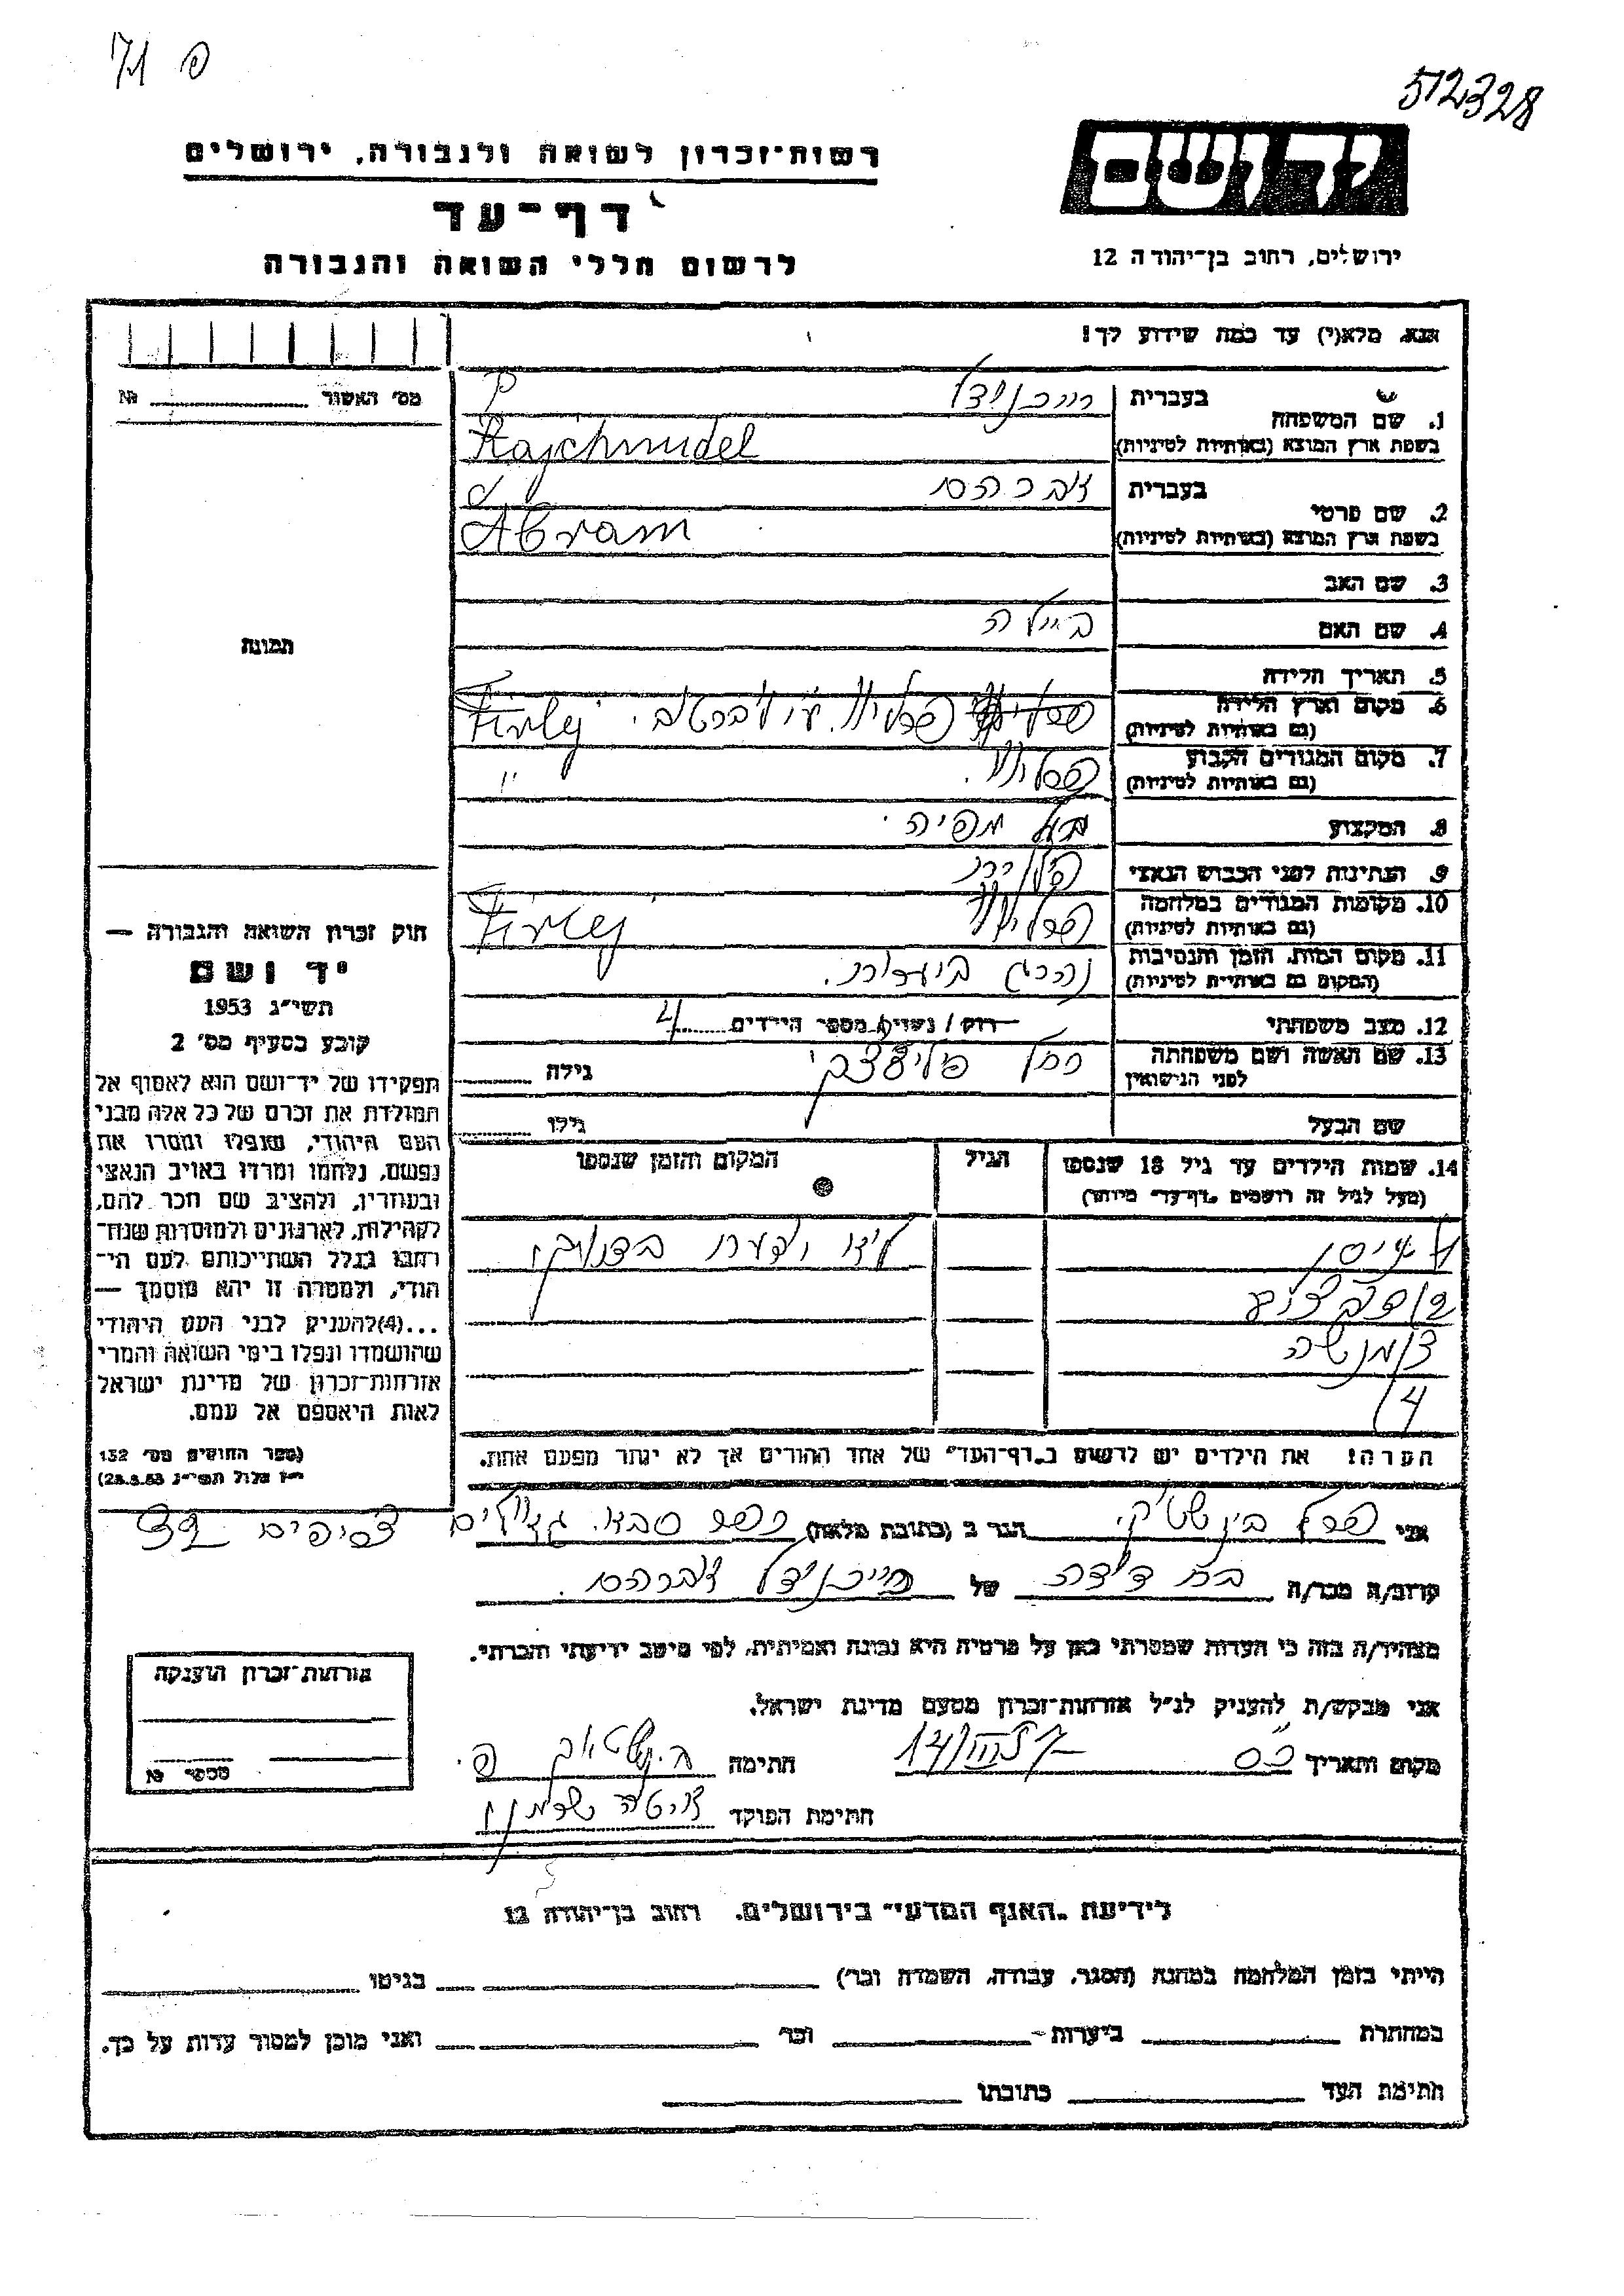 512328
רשות־זכרון לשואה ולגבורה, ירושלים
דף־עד
לרשום חללי השואה והגבורה
יד ושם
ירושלים, רחוב בן־יהודה 12
אנא, מלא(י) עד כמה שידוע לך!
מס' האשור № 
1. שם המשפחה
בעברית רייכנידל
בשפת ארץ המוצא (באותיות לטיניות) Rajchnudel
2. שם פרטי
בעברית אברהם
בשפת ארץ המוצא (באותיות לטיניות) Abram
3. שם האב
4. שם האם ביילה
5. תאריך הלידה
6. מקום וארץ הלידה
(גם באותיות לטיניות) Firlej
7. מקום המגורים הקבוע
(גם באותיות לטיניות) "
8. המקצוע בעל מפיה.
9. הנתינות לפני הכבוש הנאצי
10. מקומות המגורים במלחמה
(גם באותיות לטיניות) Firlej
11. מקום המות, הזמן והנסיבות
(המקום גם באותיות לטיניות) נהרג ביערות.
12. מצב משפחתי רוק / נשוי / מספר הילדים 4
13. שם האשה ושם משפחתה
לפני הנישואין רחל גילה
שם הבעל גילו
14. שמות הילדים עד גיל 18 שנספו
(מעל לגיל זה רושמים "דף־עד" מיוחד)
הגיל
המקום והזמן שנספו
1) ניסן
2)
3) מנשה
4)
הערה! את הילדים יש לרשום ב"דף־העד" של אחד ההורים אך לא יותר מפעם אחת.
תמונה
חוק זכרון השואה והגבורה —
יד ושם
תשי"ג 1953
קובע בסעיף מס' 2
תפקידו של יד־ושם הוא לאסוף אל
המולדת את זכרם של כל אלה מבני
העם היהודי, שנפלו ומסרו את
נפשם, נלחמו ומרדו באויב הנאצי
ובעוזריו, ולהציב שם וזכר להם,
לקהילות, לארגונים ולמוסדות שנח־
רבו בגלל השתייכותם לעם הי־
הודי, ולמטרה זו יהא מוסמך —
...(4) להעניק לבני העם היהודי
שהושמדו ונפלו בימי השואה והמרי
אזרחות־זכרון של מדינת ישראל
לאות היאספם אל עמם.
(ספר החוקים מס' 132
י"ז אלול תשי"ג 28.8.53)
אני הגר ב (כתובת מלאה) כפר סבא.
קרוב/ה מכר/ה בת דודה של רייכנידל אברהם.
מצהיר/ה בזה כי העדות שמסרתי כאן על פרטיה היא נכונה ואמיתית, לפי מיטב ידיעתי והכרתי.
אני מבקש/ת להעניק לנ"ל אזרחות־זכרון מטעם מדינת ישראל.
מקום ותאריך חתימה
חתימת הפוקד
אזרחות־זכרון הוענקה
מספר №
לידיעת "האגף המדעי" בירושלים. רחוב בן־יהודה 12
הייתי בזמן המלחמה במחנה (הסגר, עבודה, השמדה וכו') בגיטו
במחתרת ביערות וכו' ואני מוכן למסור עדות על כך.
חתימת העד כתובתו